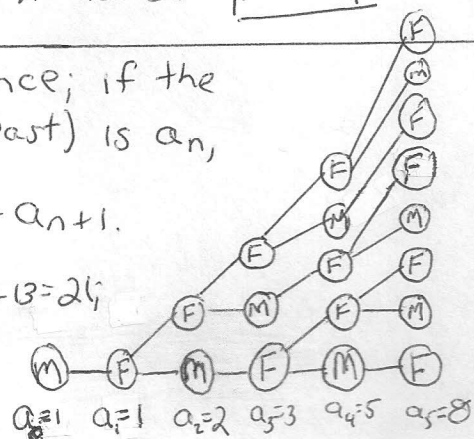 nce; if the
ast) is aₙ,
aₙ+1.
13=21;
F
M
F
F
F
M
M
F
F
F
F
M
F
M
M
F
M
F
M
F
a₀=1 a₁=1 a₂=2 a₃=3 a₄=5 a₅=8